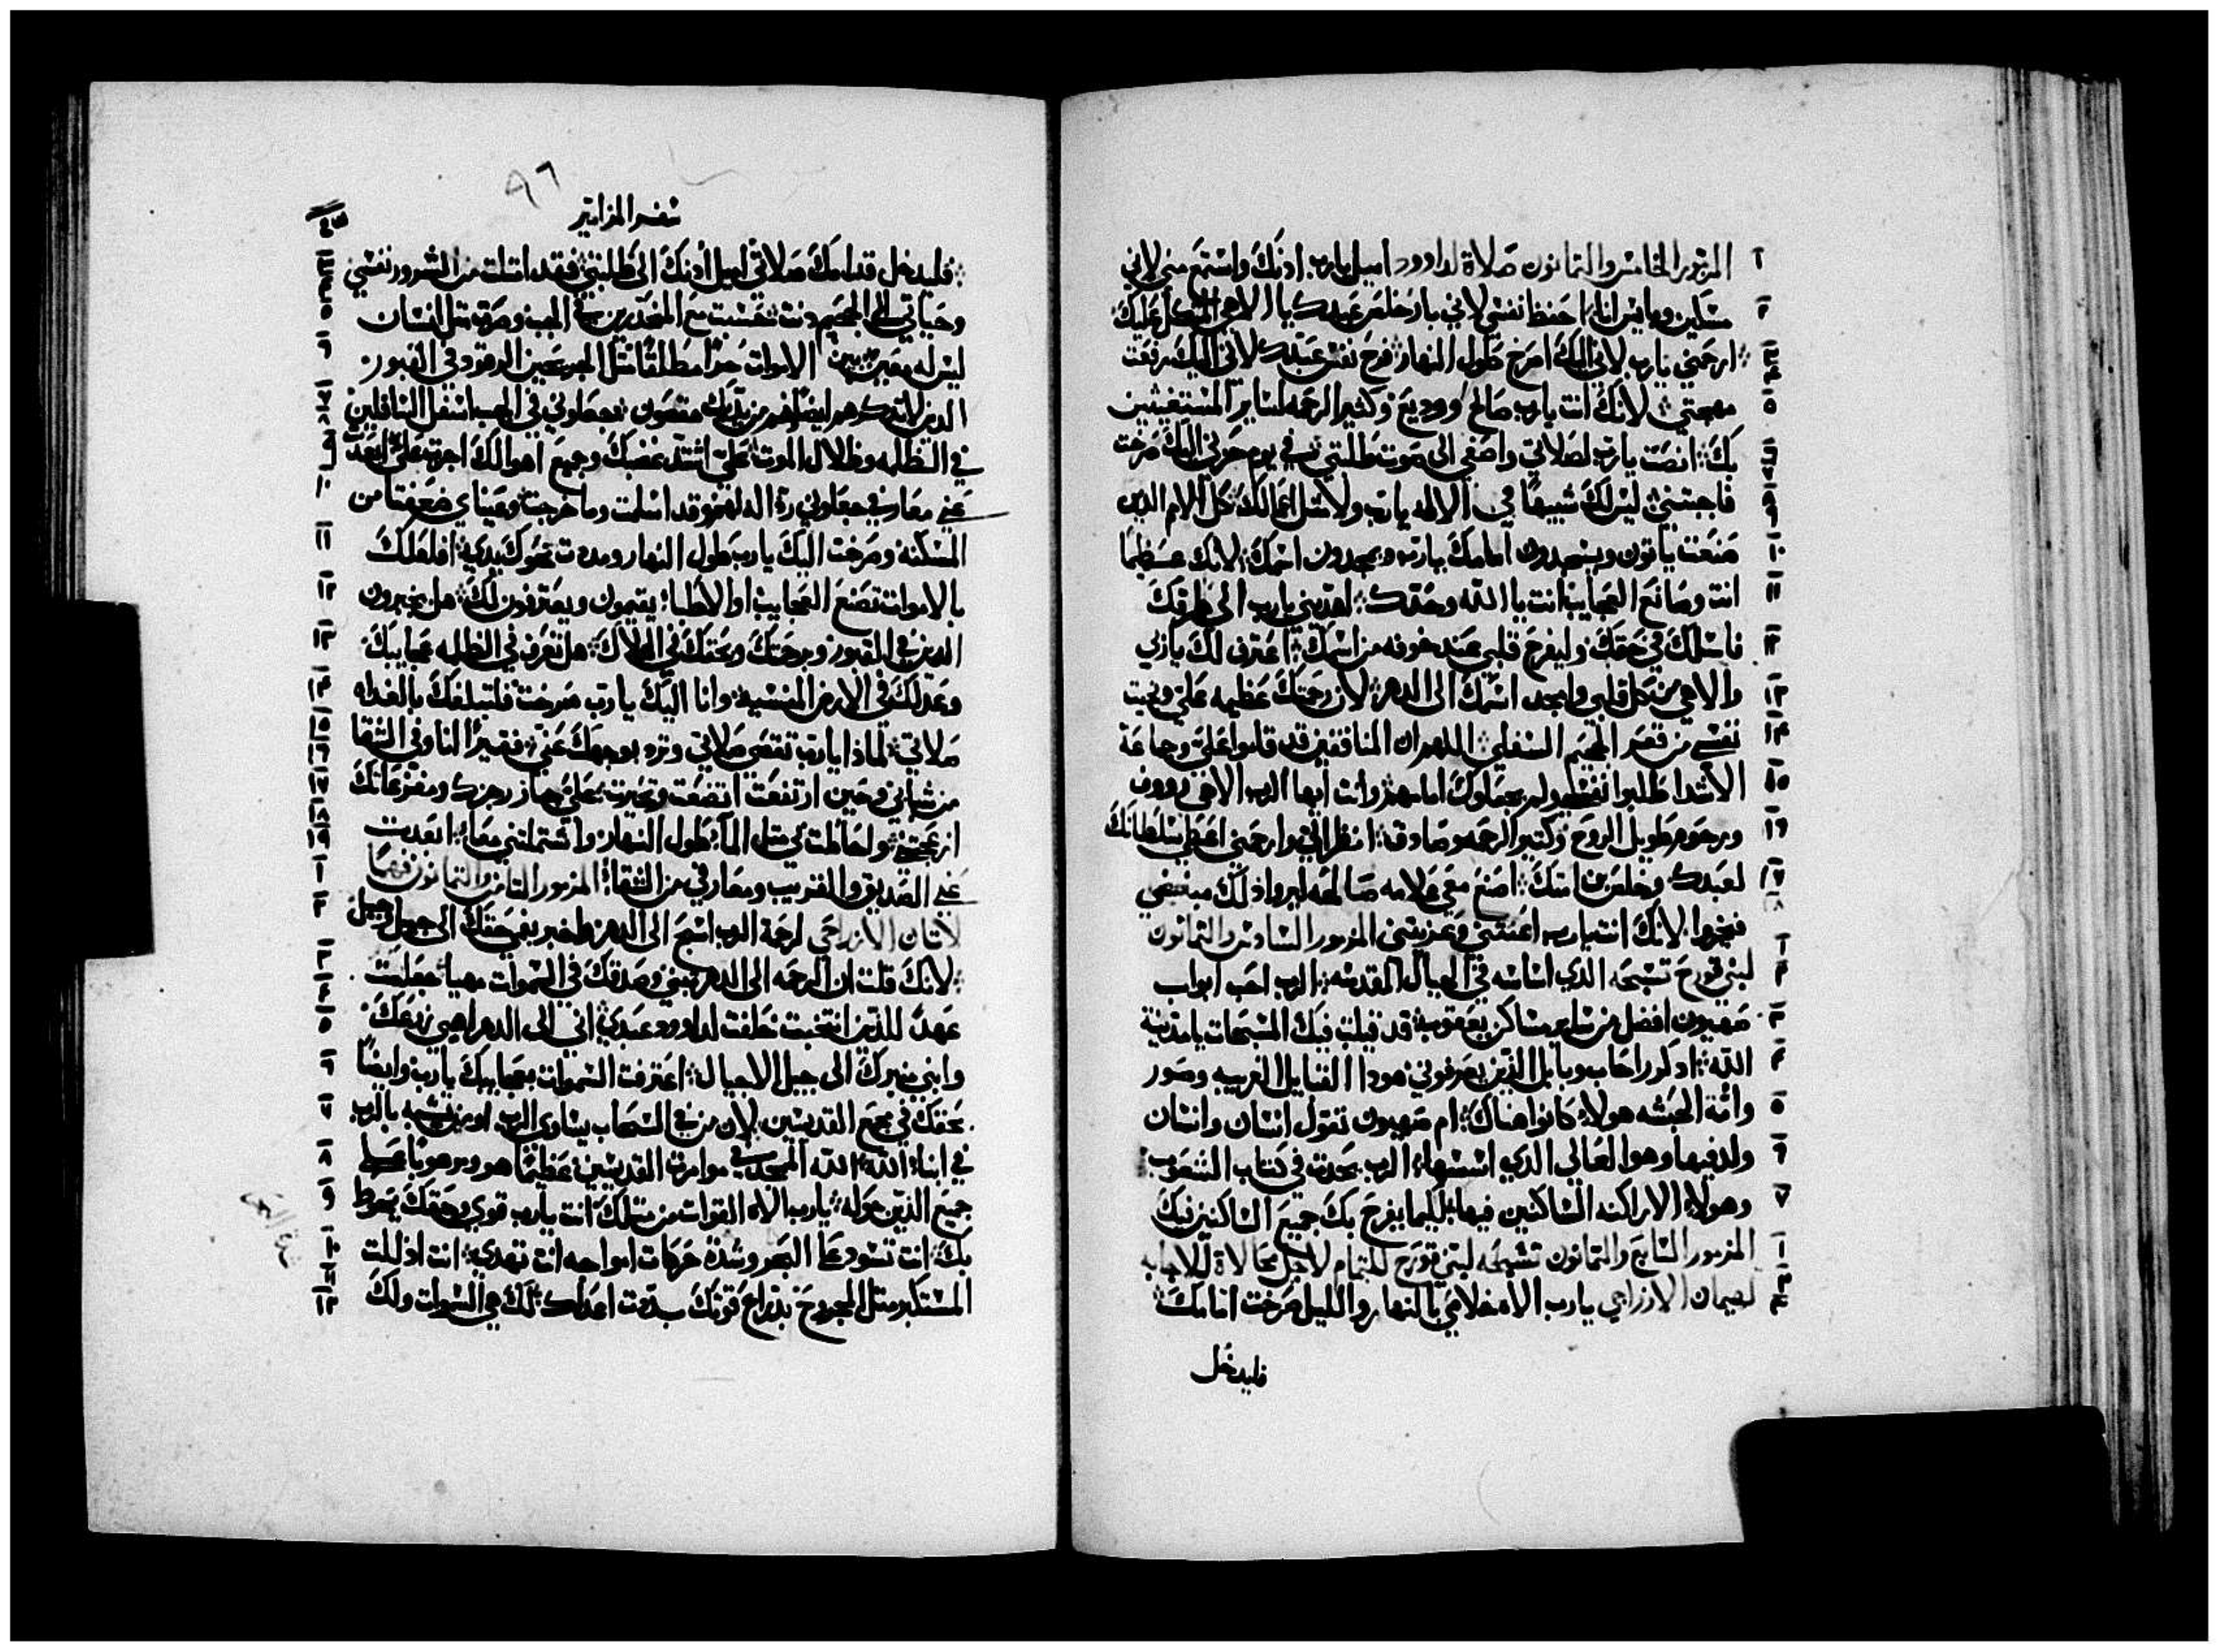 المزمور الخامس والثمانون صلاة لداوود اميل يارب ادنك واستمع مني لاني
مسكين وبايس انا احفظ نفسي لاني بار خلص عبدك يا الاهي المتكل عليك
ارحمني يارب لاني اليك اصرخ طول النهار فرح نفس عبدك لاني اليك رفعت
مهجتي لانك انت يارب صالح ووديع وكثير الرحمه لساير المستغيثين
بك انصت يارب لصلاتي واصغي الى صوت طلبتي في يوم حزني اليك صرخت
فاجبتني ليس لك شبيها في الالهه يارب ولا مثل اعمالك كل الامم الدين
صنعت ياتون ويسجدون امامك يارب ويمجدون اسمك لانك عظيما
انت وصانع العجايب انت يا الله وحدك اهديني يارب الى طرقك
فاسلك في حقك وليفرح قلبي عند خوفه من اسمك اعترف لك ياربي
والاهي من كل قلبي وامجد اسمك الى الدهر لان رحمتك عظيمه علي ونجيت
نفسي من قعر الجحيم السفلي اللهم ان المنافقين قد قاموا علي وجماعة
الاشدا طلبوا نفسي ولم يجعلوك امامهم وانت ايها الرب الاهي رووف
ورحوم طويل الروح وكثير الرحمه وصادق انظر الي وارحمني اعطي سلطانك
لعبدك وخلص بن امتك اصنع معي علامه صالحه ليروا ذلك مبغضي
فيخزوا لانك انت يارب اعنتني وعزيتني المزمور السادس والثمانون
لبني قورح تسبحه الدي اساسه في الجبال المقدسه الرب احب ابواب
صهيون افضل من ساير مساكن يعقوب قد قيلت فيك المسبحات يا مدينة
الله ادكر راحاب وبابل الدين يعرفوني هودا القبايل الغريبه وصور
وامة الحبشه هولاء كانوا هناك ام صهيون تقول انسان وانسان
ولد فيها وهو العالي الدي اسسها الرب يحدث في كتاب الشعوب
وهولاء الاراكنه الساكنين فيها لكيما يفرح بك جميع الساكنين فيك
المزمور السابع والثمانون تسبحه لبني قورح للتمام لاجل للاجابه
لهيمان الازراحي يارب الاه خلاصي بالنهار والليل صرخت امامك
فليدخل
سفر المزامير
٩٦
فليدخل قدامك صلاتي اميل ادنك الى طلبتي فقد امتلت من الشرور نفسي
وحياتي الى الجحيم دنت حسبت مع المنحدرين في الجب وصرت مثل انسان
ليس له معين بين الاموات حرا مطلقا مثل المجروحين الرقود في القبور
الدين لا تدكرهم ايضا وهم من يديك مقصون جعلوني في الجب اسفل السافلين
في الظلمه وظلال الموت علي اشتد غضبك وجميع اهوالك اجزت علي ابعدت
عني معارفي جعلوني ردالة لهم وقد اسلمت وما خرجت وعيناي ضعفتا من
المسكنه وصرخت اليك يارب طول النهار ومددت نحوك يدي افلعلك
بالاموات تصنع العجايب او الاطبا يقيمون ويعترفون لك هل يخبرون
الدين في القبور برحمتك وبحقك في الهلاك هل تعرف في الظلمه عجايبك
وعدلك في الارض المنسيه وانا اليك يارب صرخت فلتبلغك بالغداه
صلاتي لمادا يارب تقصي صلاتي وترد بوجهك عني فقيرا انا وفي الشقا
من شبابي وحين ارتفعت اتضعت وتحيرت علي جاز رجزك ومفزعاتك
ازعجتني ولحاطت بي مثل المآ طول النهار واشتملتني معا ابعدت
عني الصديق والقريب ومعارفي من الشقا المزمور الثامن والثمانون فهما
لاتان الازراحي لرحمة الرب اسبح الى الدهر واخبر بفي حقك الى جيل وجيل
لانك قلت ان الرحمه الى الدهر تبني وصدقك في السموات مهيا جعلت
عهدا للدين انتخبت حلفت لداوود عبدي اني الى الدهر اهيي زرعك
وابني منبرك الى جيل الاجيال اعترفت السموات بعجايبك يارب وايضا
بحقك في مجمع القديسين لان من في السحاب يساوي الرب او من يشبه بالرب
في ابناء الله الله الممجد في موامرة القديسين عظيما هو ومرهوبا على
جميع الدين حوله يارب الاه القوات من مثلك انت يارب قوي وحقك يحوط
بك انت تسود عز البحر وشدة حركات امواجه انت تهدي انت اذللت
المستكبر مثل المجروح بذراع قوتك بددت اعداك لك هي السموات ولك